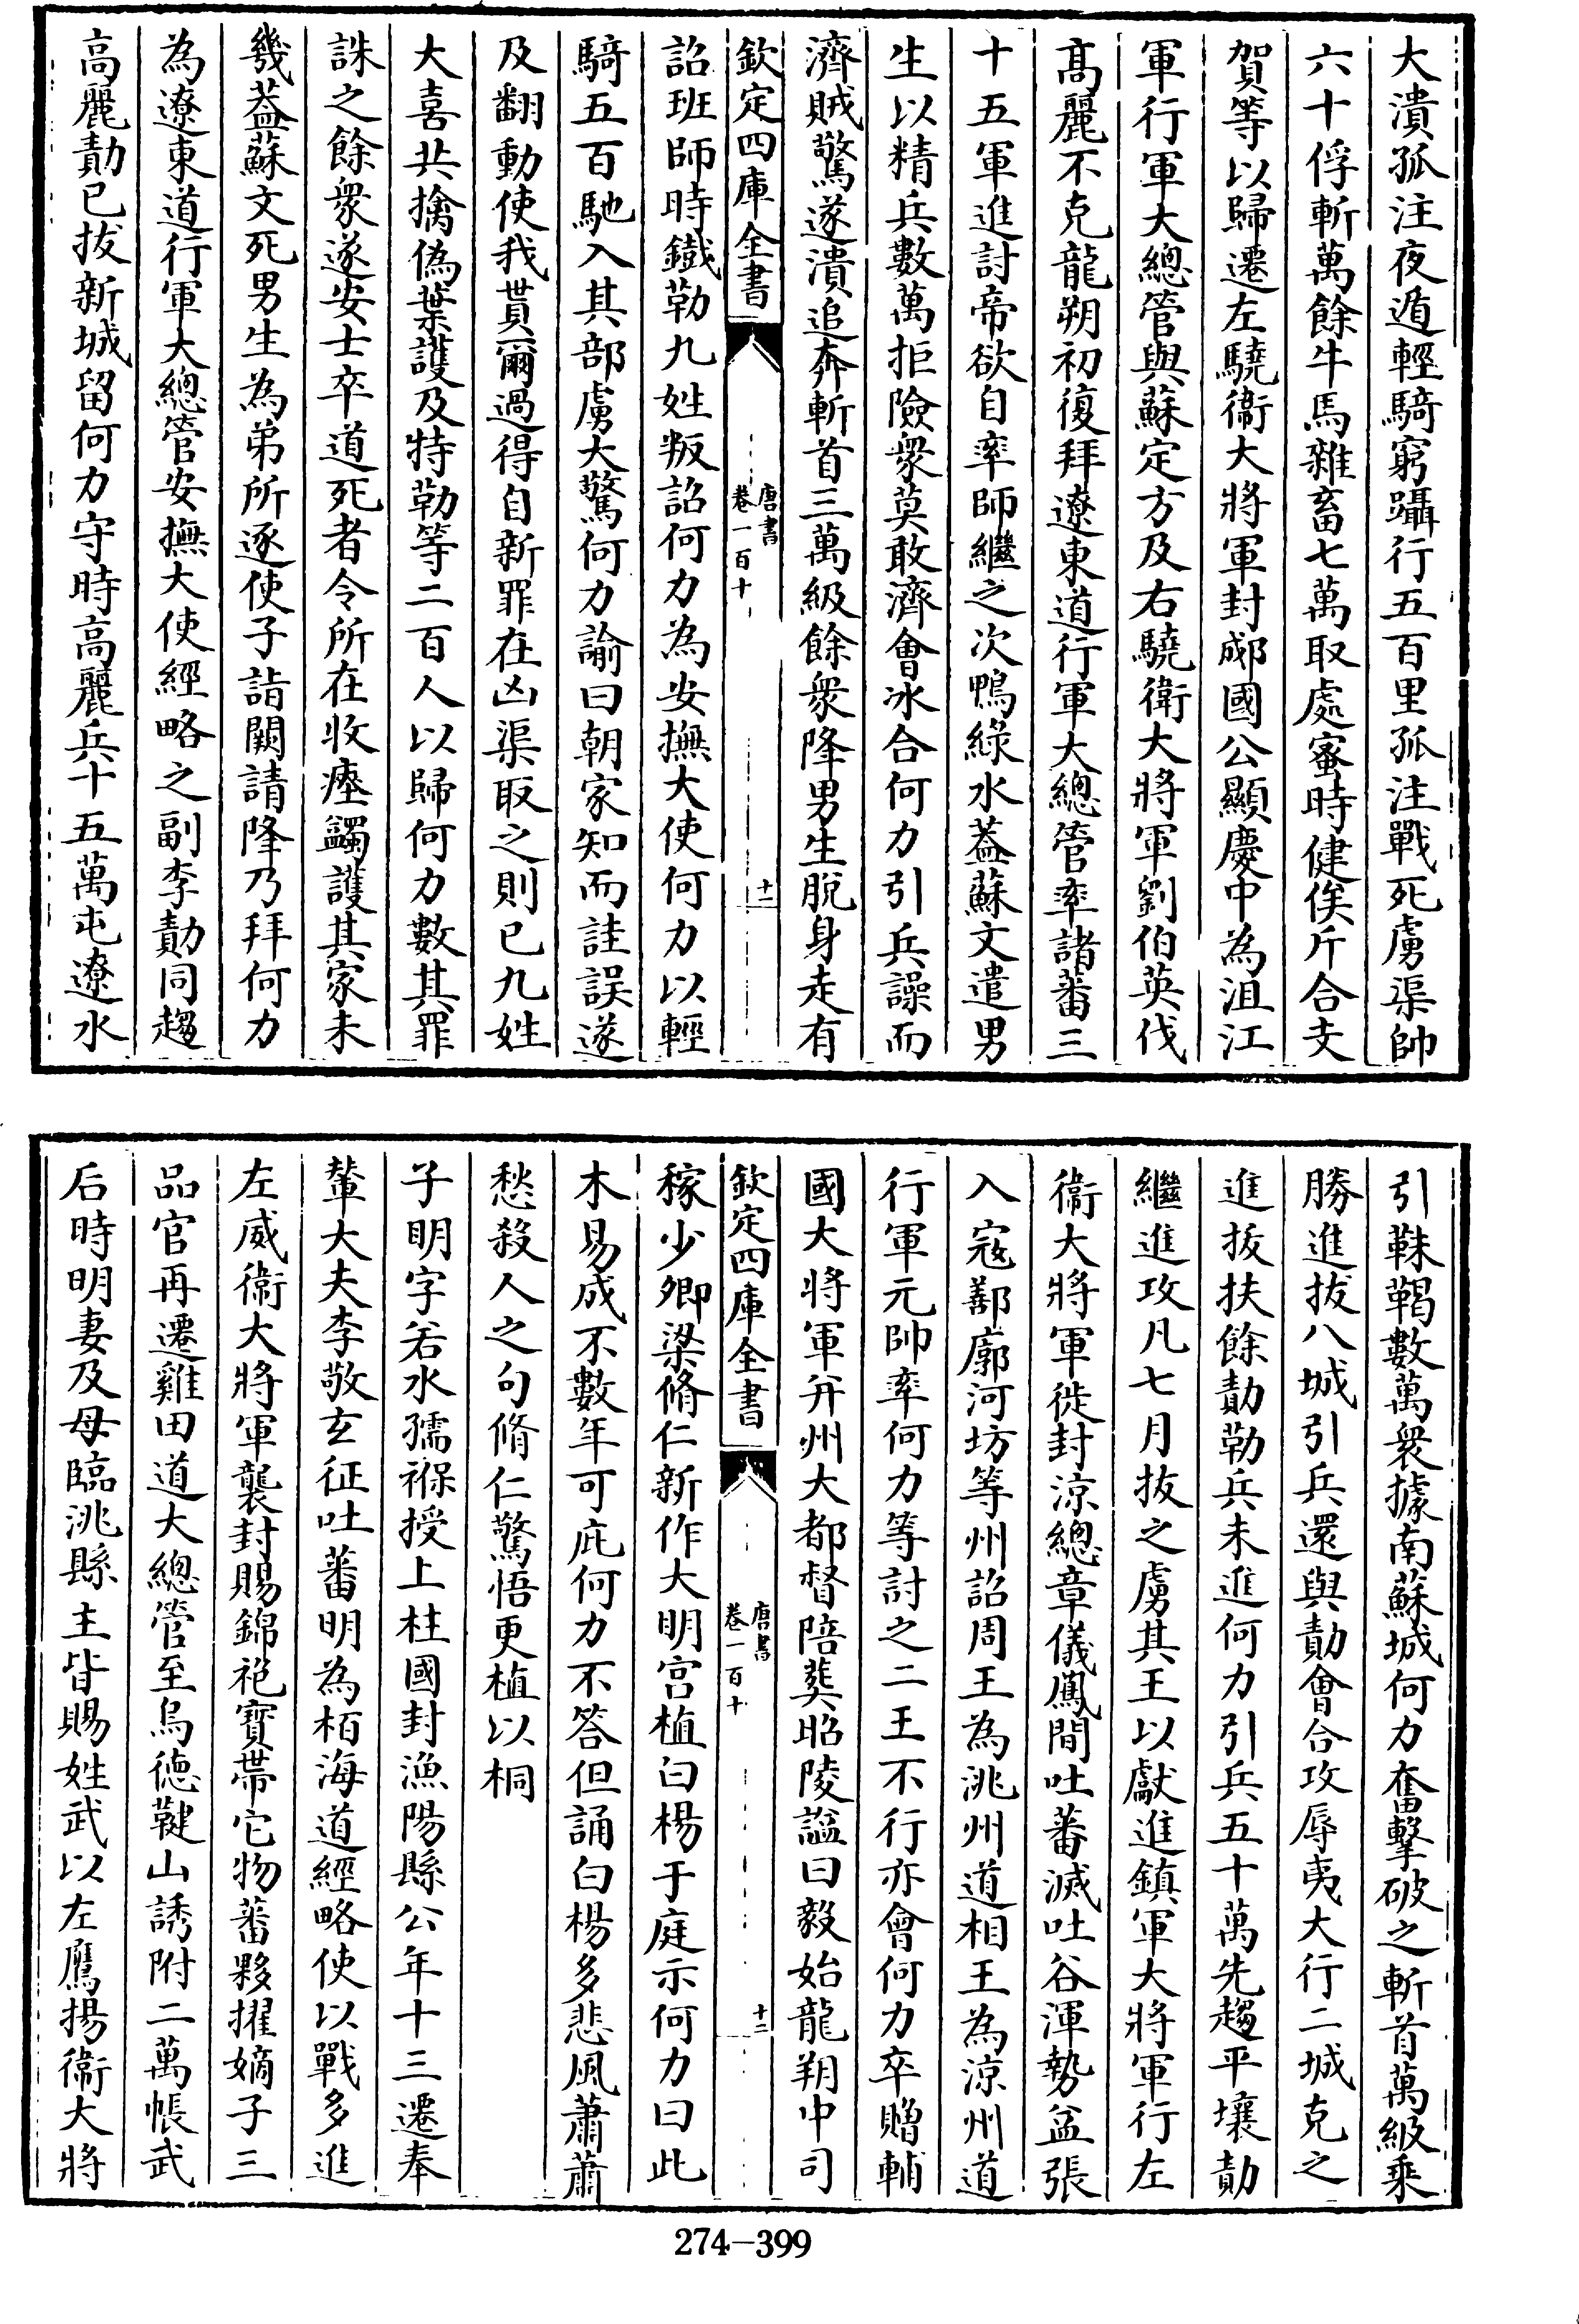 大潰孤注夜遁輕騎窮躡行五百里孤注戰死虜渠帥
六十俘斬萬餘牛馬雜畜七萬取處蜜時健俟斤合支
賀等以歸遷左驍衞大將軍封郕國公顯慶中為浿江
軍行軍大總管與蘇定方及右驍衛大將軍劉伯英伐
髙麗不克龍朔初復拜遼東道行軍大總管率諸蕃三
十五軍進討帝欲自率師繼之次鴨綠水蓋蘇文遣男
生以精兵數萬拒險衆莫敢濟會冰合何力引兵譟而
濟賊驚遂潰追奔斬首三萬級餘衆降男生脫身走有
欽定四庫全書
唐書
卷一百十
十二
詔班師時鐵勒九姓叛詔何力為安撫大使何力以輕
騎五百馳入其部虜大驚何力諭曰朝家知而詿誤遂
及翻動使我貰爾過得自新罪在凶渠取之則已九姓
大喜共擒偽葉護及特勒等二百人以歸何力數其罪
誅之餘衆遂安士卒道死者令所在收瘞蠲護其家未
幾蓋蘇文死男生為弟所逐使子詣闕請降乃拜何力
為遼東道行軍大總管安撫大使經略之副李勣同趨
高麗勣已拔新城留何力守時高麗兵十五萬屯遼水
引靺鞨數萬衆據南蘇城何力奮擊破之斬首萬級乘
勝進拔八城引兵還與勣會合攻辱夷大行二城克之
進拔扶餘勣勒兵未進何力引兵五十萬先趨平壤勣
繼進攻凡七月拔之虜其王以獻進鎮軍大將軍行左
衞大將軍徙封涼總章儀鳳間吐蕃滅吐谷渾勢益張
入寇鄯廓河坊等州詔周王為洮州道相王為涼州道
行軍元帥率何力等討之二王不行亦會何力卒贈輔
國大將軍并州大都督陪葬昭陵諡曰毅始龍朔中司
欽定四庫全書
唐書
卷一百十
十三
稼少卿梁脩仁新作大明宮植白楊于庭示何力曰此
木易成不數年可庇何力不答但誦白楊多悲風蕭蕭
愁殺人之句脩仁驚悟更植以桐
子明字若水孺褓授上柱國封漁陽縣公年十三遷奉
輦大夫李敬玄征吐蕃明為栢海道經略使以戰多進
左威衞大將軍襲封賜錦袍寶帶它物蕃夥擢嫡子三
品官再遷雞田道大總管至烏德鞬山誘附二萬帳武
后時明妻及母臨洮縣主皆賜姓武以左鷹揚衞大將
274—399